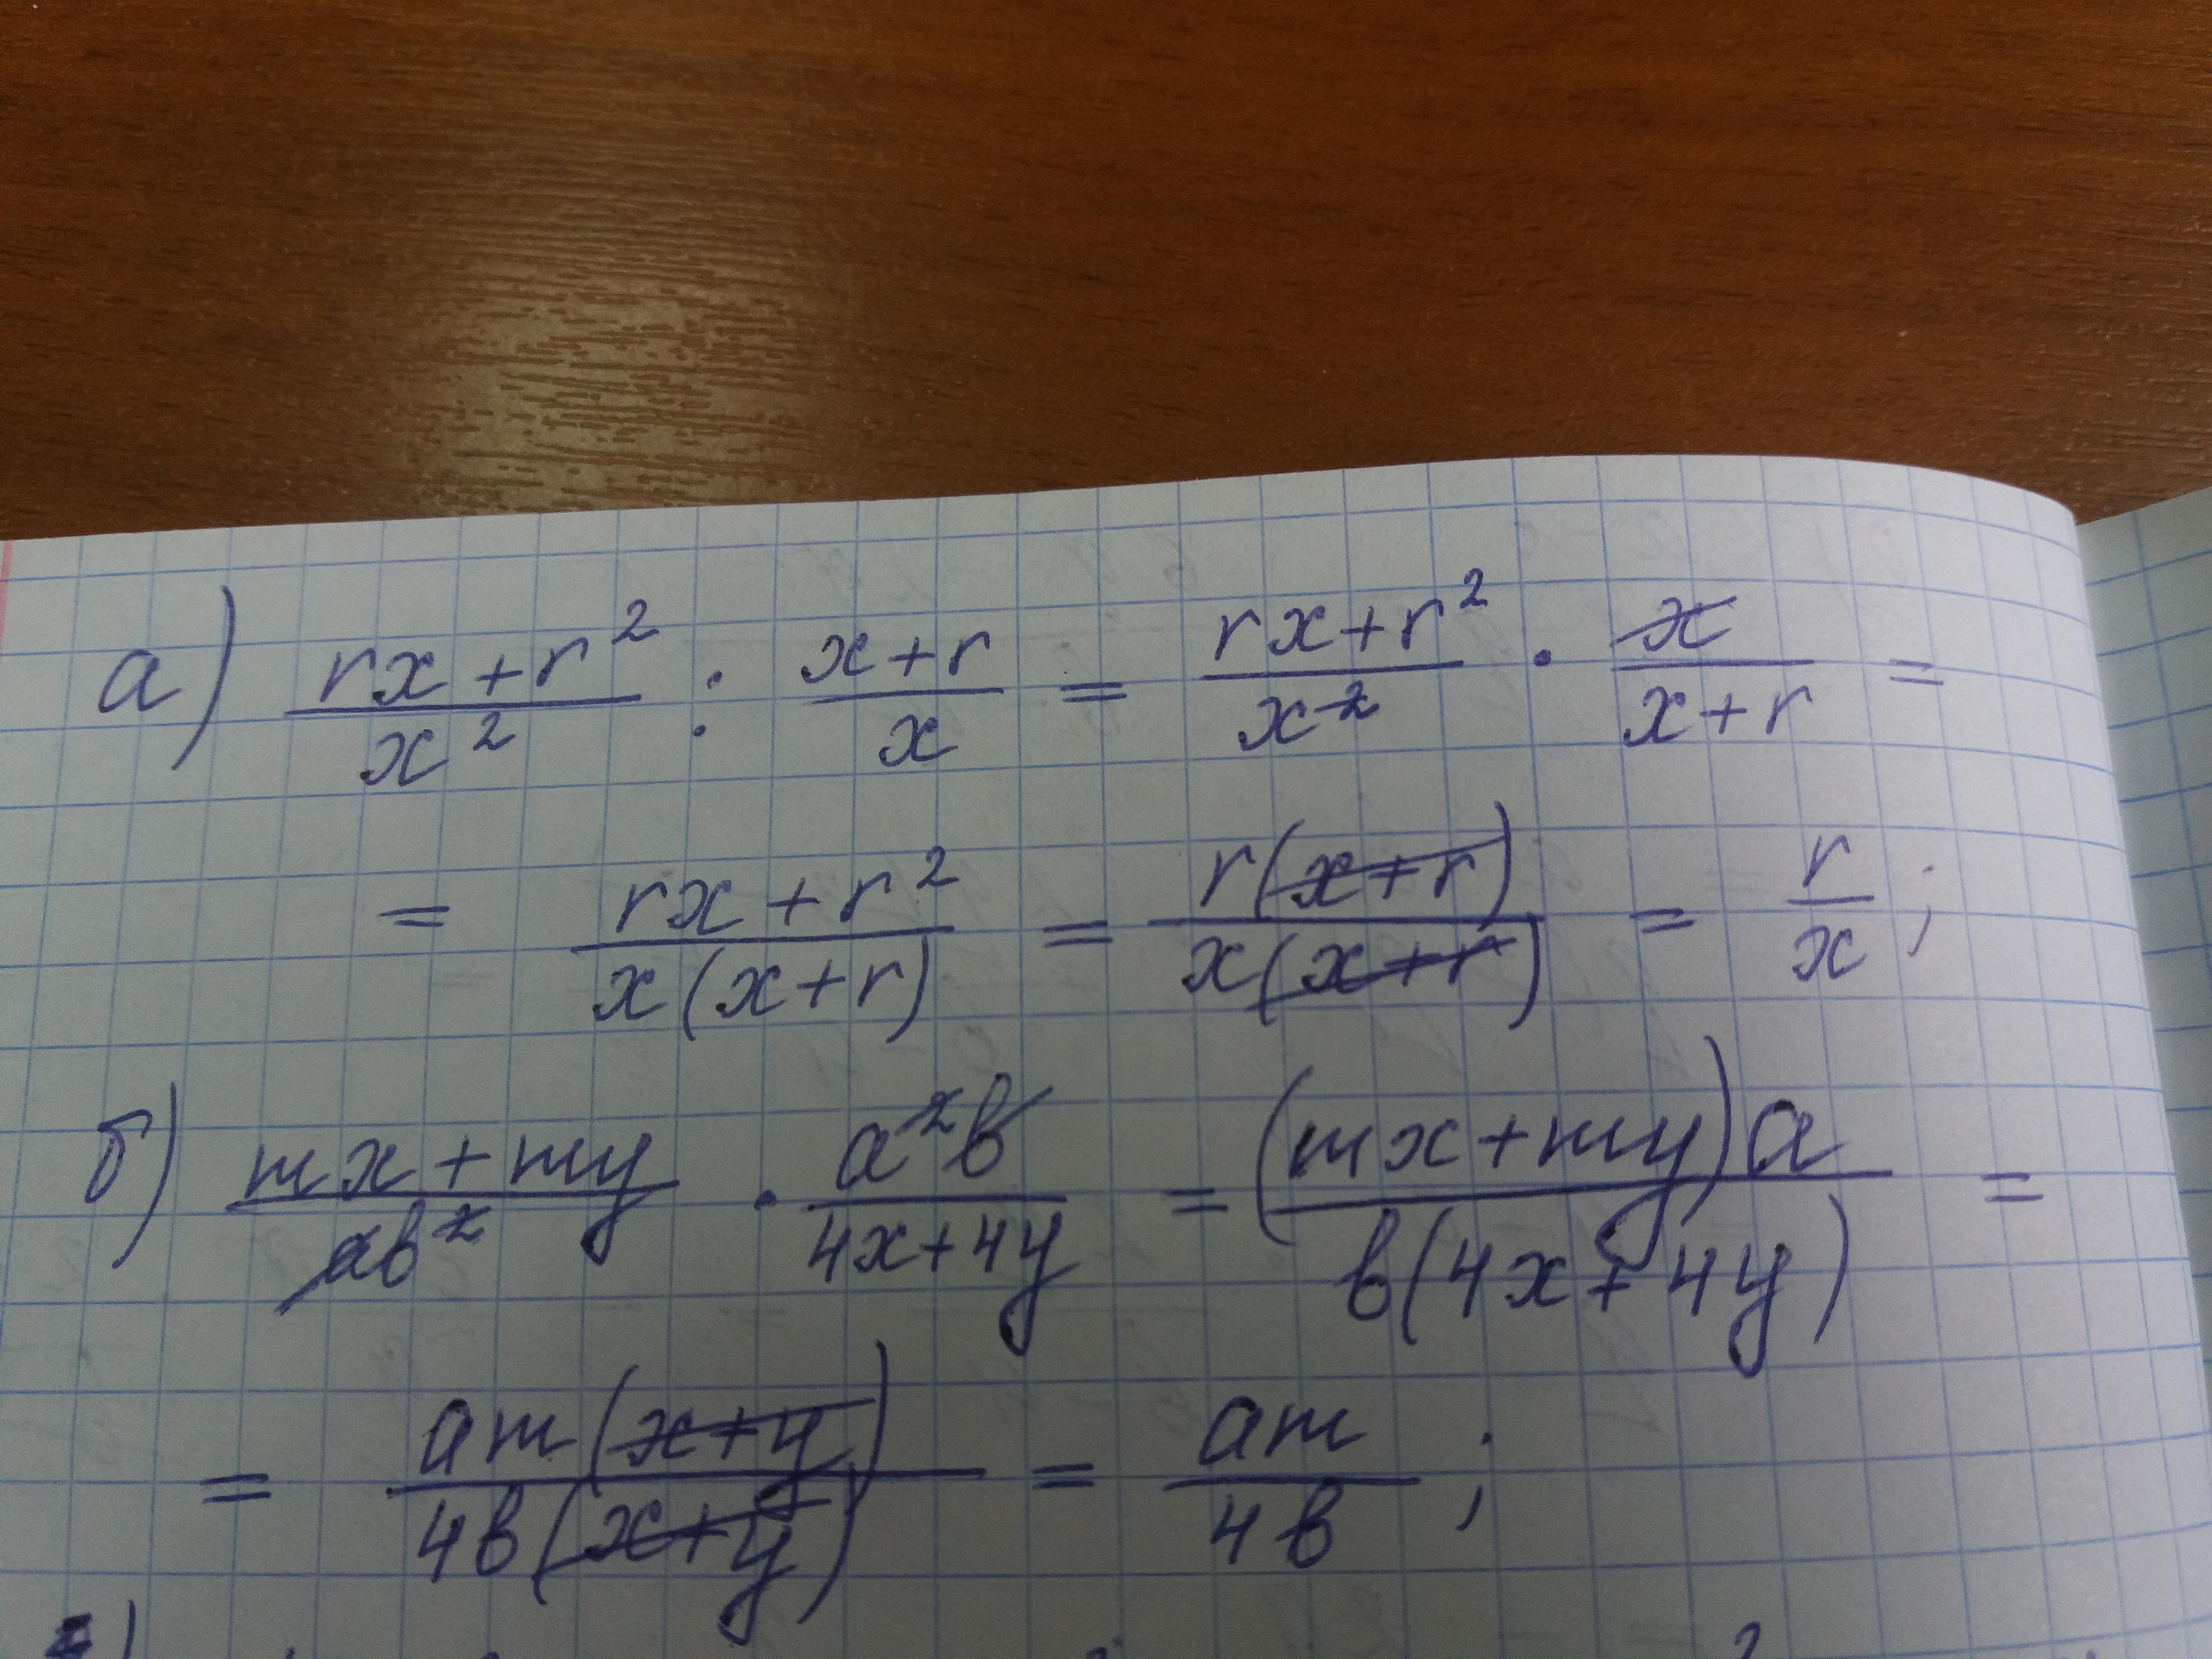 а) (rx+r²)/x² : (x+r)/x = (rx+r²)/x² · x/(x+r) =
= (rx+r²)/(x(x+r)) = r(x+r)/(x(x+r)) = r/x;
б) (mx+my)/(ab²) · a²b/(4x+4y) = (mx+my)a/(b(4x+4y)) =
= am(x+y)/(4b(x+y)) = am/(4b);